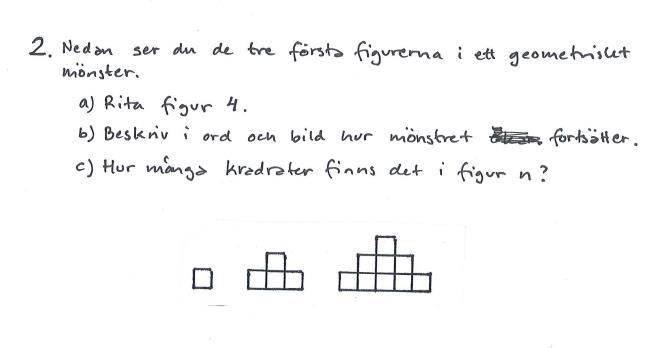 2. Nedan ser du de tre första figurerna i ett geometriskt
mönster.
a) Rita figur 4.
b) Beskriv i ord och bild hur mönstret fortsätter.
c) Hur många kvadrater finns det i figur n?